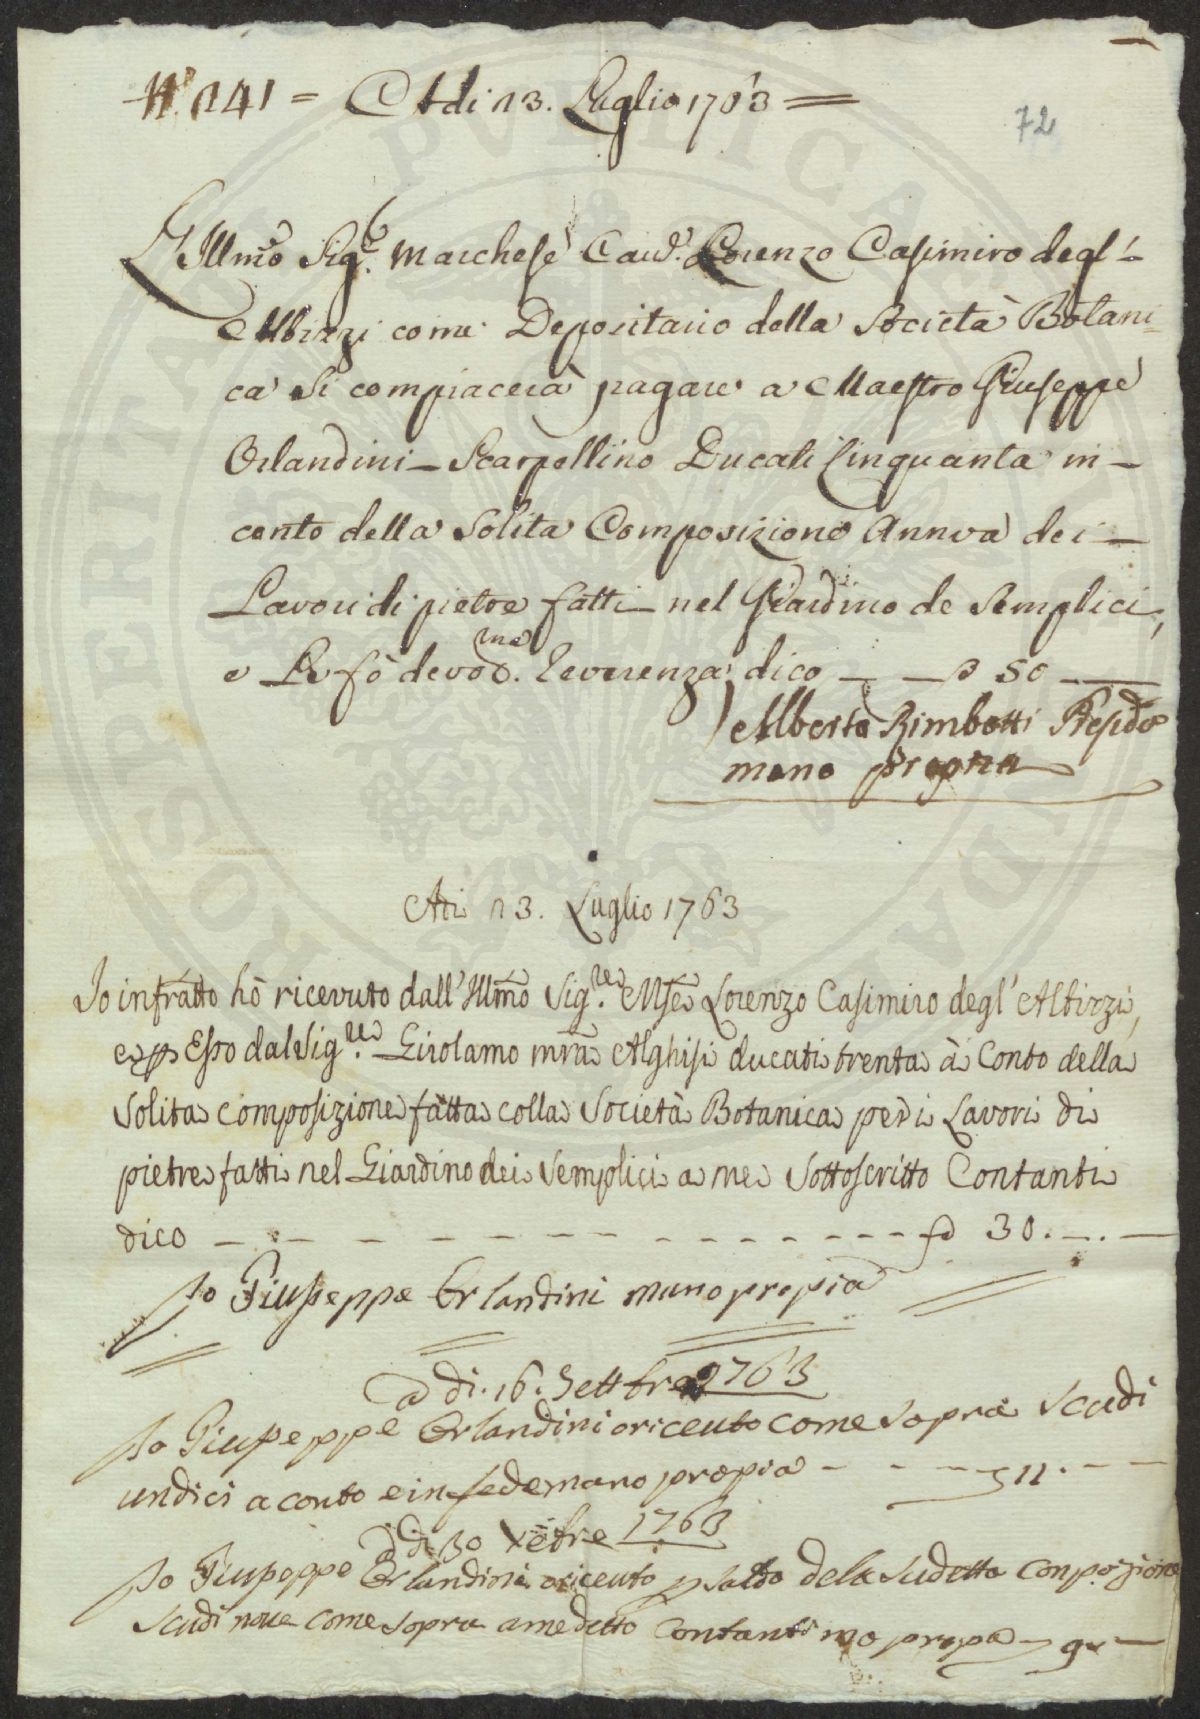 N.° 141 = A dì 13. Luglio 1763 =
72
L'Illmo Sig.re Marchese Cav.re Lorenzo Casimiro degl'
Albizzi come Depositario della Società Botani=
ca si compiacerà pagare a Maestro Giuseppe
Orlandini Scarpellino Ducati Cinquanta in
conto della solita Composizione Annua dei
Lavori di pietre fatti nel Giardino de Semplici,
e Le fò devo.ma Reverenza dico 50
Alberto Rimbotti Presid.e
mano propria
Adi 13. Luglio 1763
Io infratto hò ricevuto dall'Illmo Sig.re Mse Lorenzo Casimiro degl'Albizzi,
e p Esso dal Sig.re Girolamo Mra Alghisi ducati trenta à Conto della
Solita Composizione fatta colla Società Botanica per i Lavori di
pietre fatti nel Giardino dei Semplici a me Sottoscritto Contanti
dico 30.
Io Giuseppe Orlandini mano propia
a di. 16. Settbre 1763
Io Giuseppe Orlandini o riceuto come sopra scudi
undici a conto e in fede mano propia 11.
Adi 30 Xebre 1763
Io Giuseppe Orlandini o riceuto p saldo dela sudetta Conpozione
scudi noue come sopra a me detto Contanti mo propa 9
PVBLICAE
HOSPERITATI